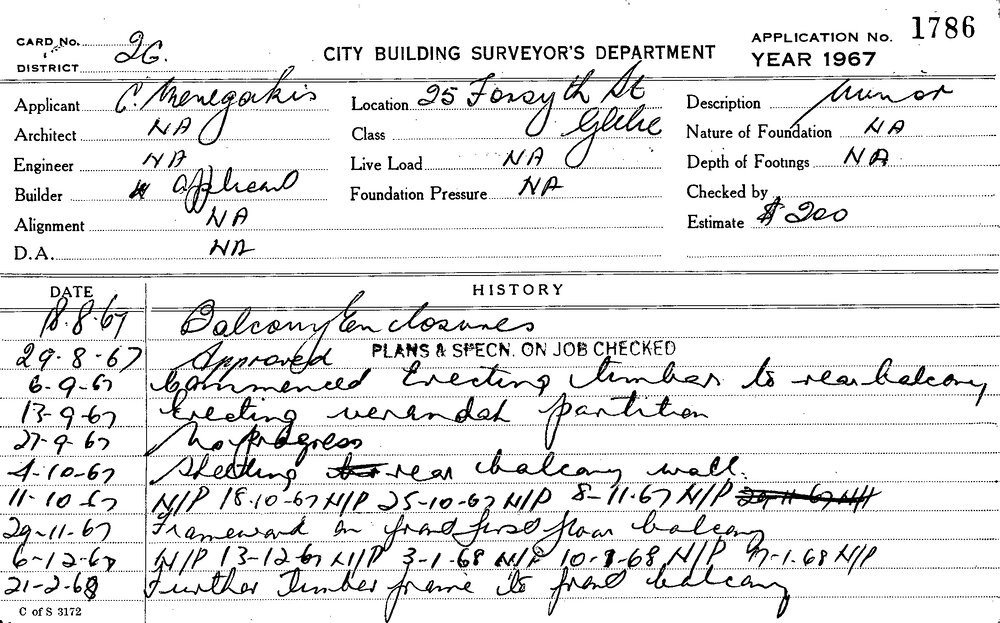 CARD No. 2G. CITY BUILDING SURVEYOR'S DEPARTMENT APPLICATION No. 1786
DISTRICT YEAR 1967
Applicant C. Menegakis Location 25 Forsyth St Description Minor
Architect NA Class Glebe Nature of Foundation NA
Engineer NA Live Load NA Depth of Footings NA
Builder applicant Foundation Pressure NA Checked by
Alignment NA Estimate $200
D.A. NA
DATE HISTORY
18.8.67 Balcony Enclosures
29.8.67 Approved PLANS & SPECN. ON JOB CHECKED
6-9-67 Commenced Erecting timber to rear balcony
13-9-67 Erecting verandah partition
27-9-67 No progress
4-10-67 Sheeting rear balcony wall.
11-10-67 N/P 18-10-67 N/P 25-10-67 N/P 8-11-67 N/P 29-11-67 N/P
29-11-67 Framework on front first floor balcony
6-12-67 N/P 13-12-67 N/P 3-1-68 N/P 10-1-68 N/P 17-1-68 N/P
21-2-68 Further timber frame to front balcony
C of S 3172